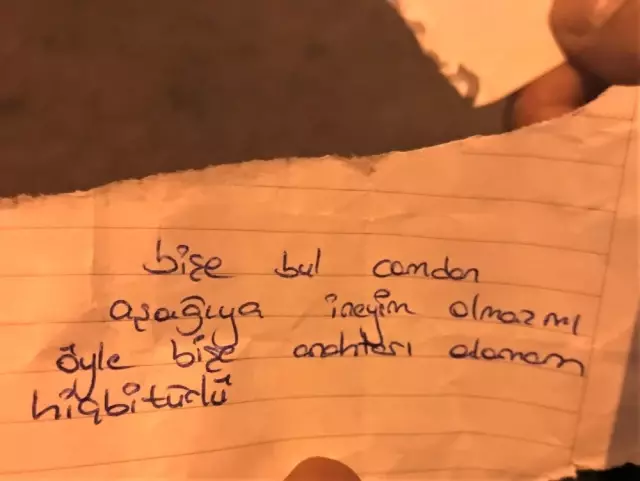 bişe bul camdan
aşağıya ineyim olmazmı
öyle bişe anahtarı alamam
hiçbitürlü